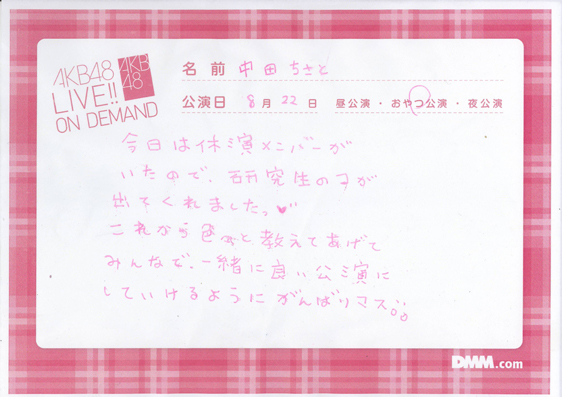 AKB48
LIVE!!
ON DEMAND
AKB
48
名前 中田ちさと
公演日 8月22日 昼公演・おやつ公演・夜公演
今日は休演メンバーが
いたので、研究生の子が
出てくれました。♥
これから色々と教えてあげて
みんなで、一緒に良い公演に
していけるようにがんばりマス。
DMM.com